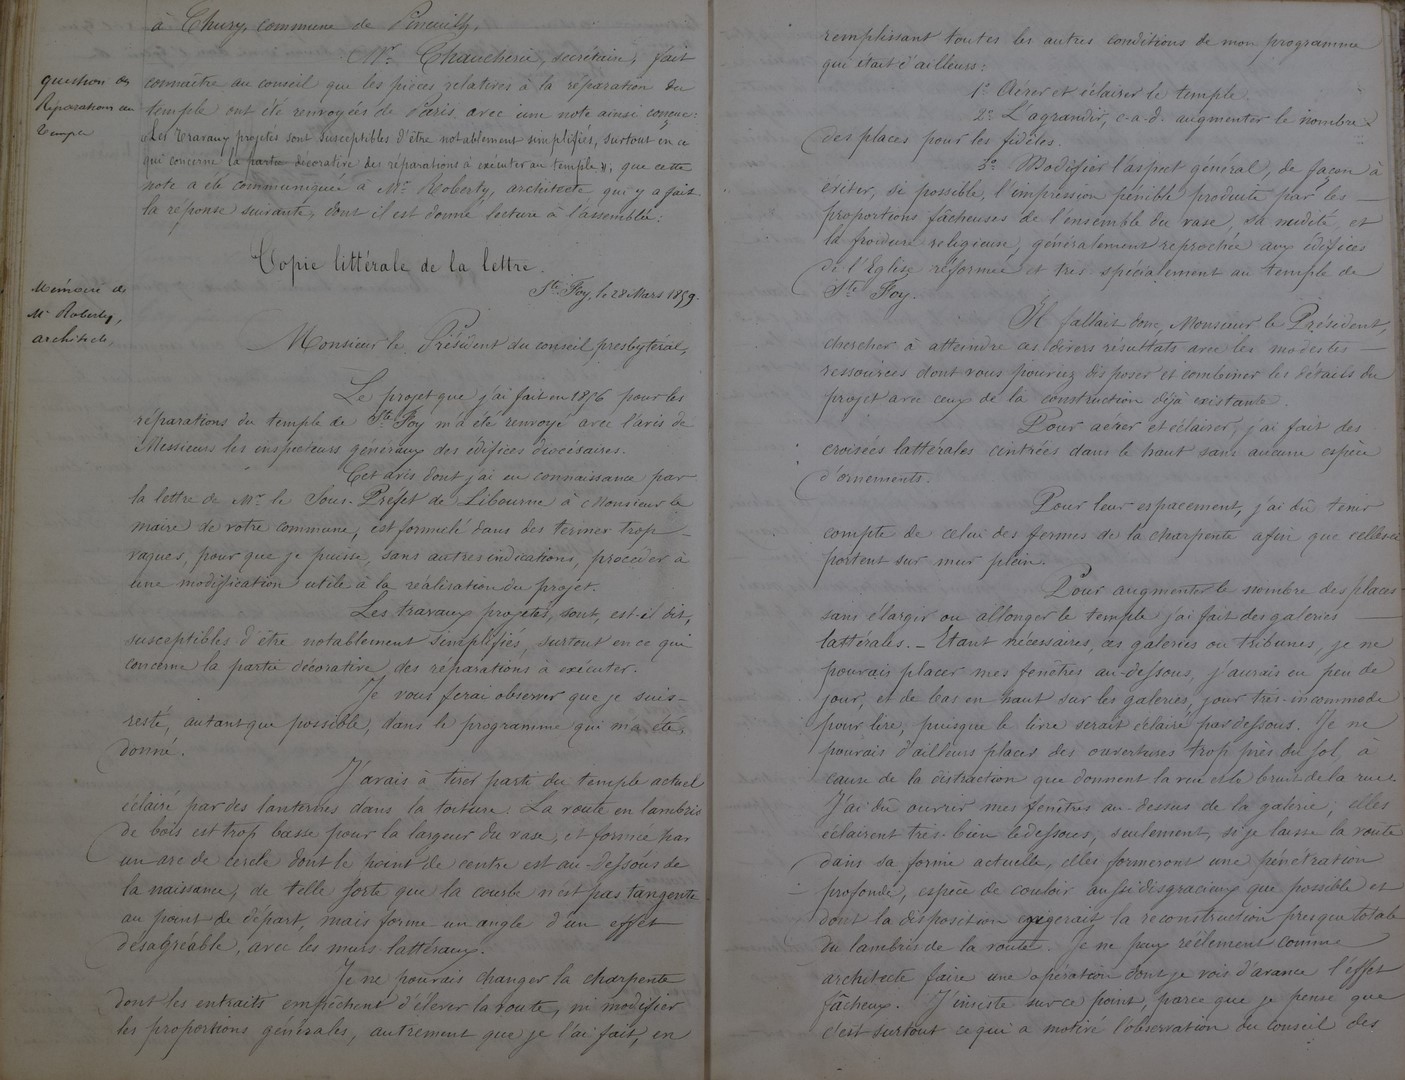 à Thury, commune de Pineuilh.
Mr. Chaucherie, secrétaire, fait
question des
Réparations au
Temple
connaître au conseil que les pièces relatives à la réparation du
temple ont été renvoyés de Paris avec une note ainsi conçue:
"Les travaux projetés sont susceptibles d'être notablement simplifiés, surtout en ce
qui concerne la partie décorative des réparations à exécuter au temple", que cette
note a été communiquée à Mr. Roberty, architecte qui y a fait
la réponse suivante, dont il est donné lecture à l'assemblée:
Copie littérale de la lettre.
Mémoire de
Mr Roberty,
architecte,
Ste. Foy, le 28 Mars 1859.
Monsieur le Président du conseil presbytéral,
Le projet que j'ai fait en 1856 pour les
réparations du temple de Ste. Foy m'a été renvoyé avec l'avis de
Messieurs les inspecteurs généraux des édifices diocésaires.
Cet avis dont j'ai eu connaissance par
la lettre de Mr. le Sous-Préfet de Libourne à Monsieur le
maire de votre commune, est formulé dans des termes trop
vagues, pour que je puisse, sans autres indications, procéder à
une modification utile à la réalisation du projet.
Les travaux projetés, sont, est-il dit,
susceptibles d'être notablement simplifiés, surtout en ce qui
concerne la partie décorative des réparations à exécuter.
Je vous ferai observer que je suis
resté, autant que possible, dans le programme qui m'a été
donné.
J'avais à tirer parti du temple actuel
éclairé par des lanternes dans la toiture. La voute en lambris
de bois est trop basse pour la largeur du vase, et formée par
un arc de cercle dont le point de centre est au-dessous de
la naissance, de telle sorte que la courbe n'est pas tangente
au point de départ, mais forme un angle d'un effet
désagréable, avec les murs lattéraux.
Je ne pouvais changer la charpente
dont les entraits empêchent d'élever la voute, ni modifier
les proportions générales, autrement que je l'ai fait, en
remplissant toutes les autres conditions de mon programme
qui était d'ailleurs:
1º. Aérer et éclairer le temple.
2º. L'agrandir, c-a-d. augmenter le nombre
des places pour les fidèles.
3º. Modifier l'aspect général, de façon à
éviter, si possible, l'impression pénible produite par les
proportions fâcheuses de l'ensemble du vase, sa nudité et
la froidure religieuse, généralement reprochée aux édifices
de l'Eglise réformée et très spécialement au temple de
Ste. Foy.
Il fallait donc, Monsieur le Président,
chercher à atteindre ces divers résultats avec les modestes
ressources dont vous pouviez disposer et combiner les détails du
projet avec ceux de la construction déjà existante.
Pour aérer et éclairer, j'ai fait des
croisées lattérales cintrées dans le haut sans aucune espèce
d'ornements.
Pour leur espacement, j'ai dû tenir
compte de celui des fermes de la charpente afin que celles-ci
portent sur mur plein.
Pour augmenter le nombre des places
sans élargir ou allonger le temple j'ai fait des galeries
lattérales. - Etant nécessaires, ces galeries ou tribunes, je ne
pouvais placer mes fenêtres au-dessous, j'aurais eu peu de
jour, et de bas en haut sur les galeries, jour très-incommode
pour lire, puisque le livre serait éclairé par dessous. Je ne
pouvais d'ailleurs placer des ouvertures trop près du sol, à
cause de la distraction que donnent la vue et le bruit de la rue.
J'ai dû ouvrir mes fenêtres au-dessus de la galerie; elles
éclairent très-bien le dessous, seulement, si je laisse la voute
dans sa forme actuelle, elles formeront une pénétration
profonde, espèce de couloir aussi disgracieux que possible et
dont la disposition exigerait la reconstruction presque totale
du lambris de la voute. Je ne puis réellement comme
architecte faire une opération dont je vois d'avance l'effet
fâcheux. J'insiste sur ce point, parce que je pense que
c'est surtout ce qui a motivé l'observation du conseil des